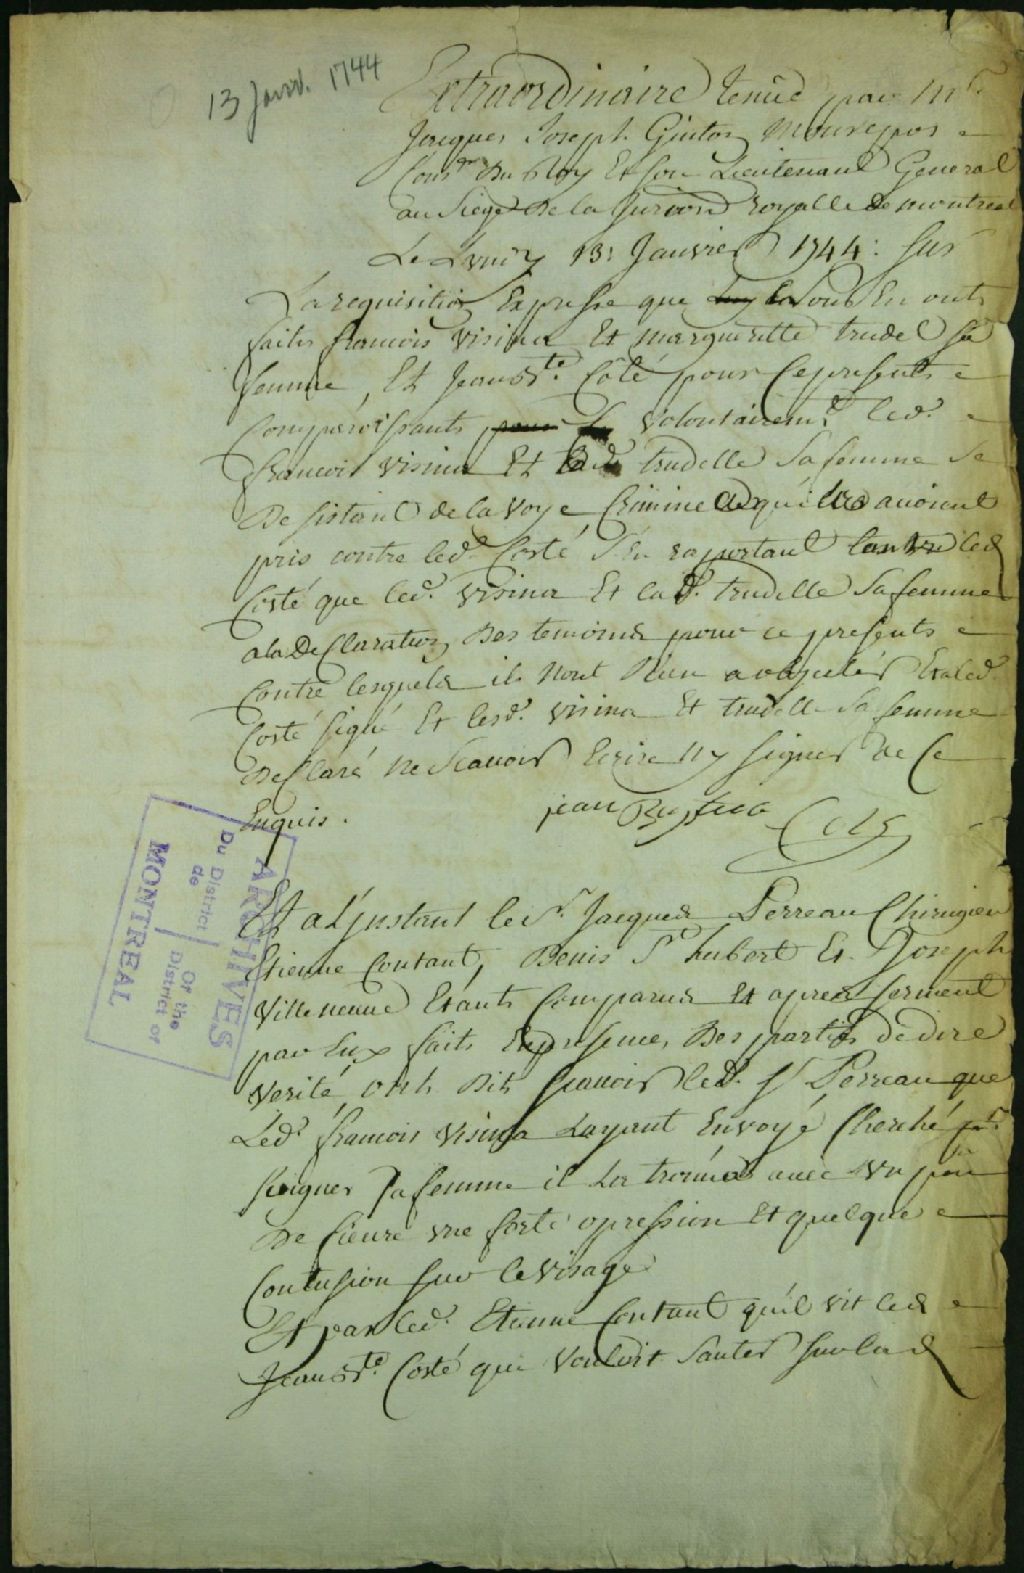 13 Janv. 1744
Extraordinaire tenüe par Mr.
Jacques Joseph Guiton Monrepos
Consr. du Roy Et son Lieutenant General
au Siege de la Jurisdon royalle de montreal
Le Lundy 13: Janvier 1744: sur
La requisition Expresse que Nous En ont
faites francois visina Et margueritte trudel sa
femme, Et Jean Bte. Coté pour Ce presents
Comparoissants volontairemt. led.
francois visina Et lad. trudelle sa femme se
Desistant de la voye Criminelle qu'ils avoient
pris contre led. Costé s'En raportant led
Costé que led. visina Et lad. trudelle sa femme
a la Declaration Des temoins pour ce presents
Contre lesquels ils N'ont Rien a objecter Et a led.
Costé signé Et lesd. visina Et trudelle sa femme
Declaré ne Scavoir Ecrire Ny signer de Ce
Enquis. jean Baptiste Coté
Et a L'jnstant le Sr. Jacques Perreau Chirugien
Etienne Contant, Denis St hubert Et Joseph
Villeneuve Etants Comparus Et apres serment
par Eux faits En presence Des parties de dire
verité, ont Dits scavoir led. Sr Perreau que
Led. francois visina Layant Envoyé Cherché pr.
soigner sa femme il La trouva avec un peu
De fievre une forte opression Et quelque
Contusion sur le visage
Et par led. Etienne Contant qu'il vit led
Jean Bte. Costé qui vouloit Sauter sur lad
ARCHIVES
Du District | Of the
de | District of
MONTREAL